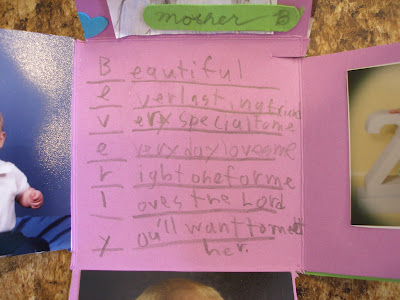 mother B
Beautiful
everlasting friend
very special to me
everyday loves me
right one for me
loves the Lord
you'll want to meet
her.